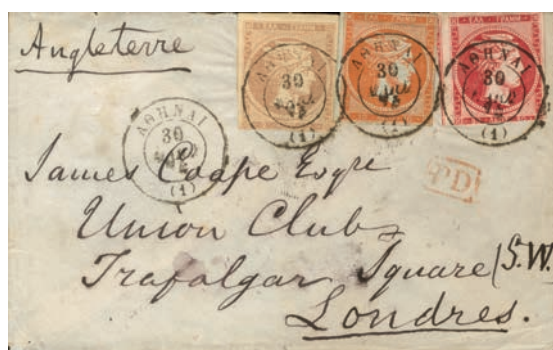 Angleterre
ΕΛΛ. ΓΡΑΜΜ.
ΕΛΛ. ΓΡΑΜΜ.
ΑΘΗΝΑΙ
30
(1)
ΑΘΗΝΑΙ
30
(1)
ΑΘΗΝΑΙ
30
(1)
ΑΘΗΝΑΙ
30
(1)
PD
James Coape Esqre
Union Club
Trafalgar Square (S.W.
Londres.